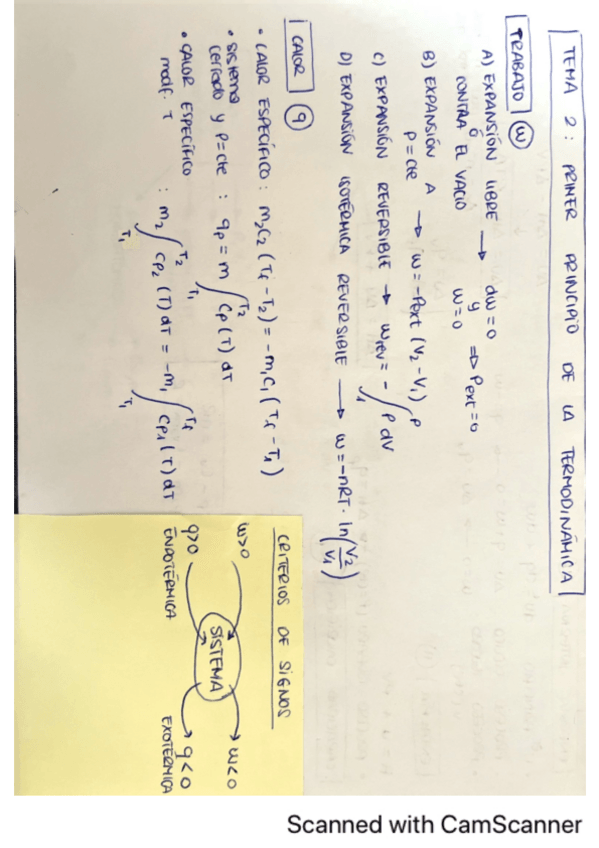 TEMA 2: PRIMER PRINCIPIO DE LA TERMODINÁMICA
TRABAJO (W)
A) EXPANSIÓN LIBRE → dw = 0
ó y ⇒ Pext = 0
CONTRA EL VACÍO w = 0
B) EXPANSIÓN A → w = -Pext (V2 - V1)
P = cte
C) EXPANSIÓN REVERSIBLE → wrev = - ∫₁ᴾ P dV
D) EXPANSIÓN ISOTÉRMICA REVERSIBLE → w = -nRT · ln(V2/V1)
CALOR (q)
• CALOR ESPECÍFICO: m2c2 (Tf - T2) = -m1c1 (Tf - T1)
• sistema
cerrado y P = cte : qp = m ∫T1^T2 cp (T) dT
• CALOR ESPECÍFICO
modif. T : m2 ∫T1^T2 cp2 (T) dT = -m1 ∫T1^Tf cp1 (T) dT
CRITERIOS DE SIGNOS
w>0 w<0
SISTEMA
q>0 q<0
ENDOTÉRMICA EXOTÉRMICA
Scanned with CamScanner